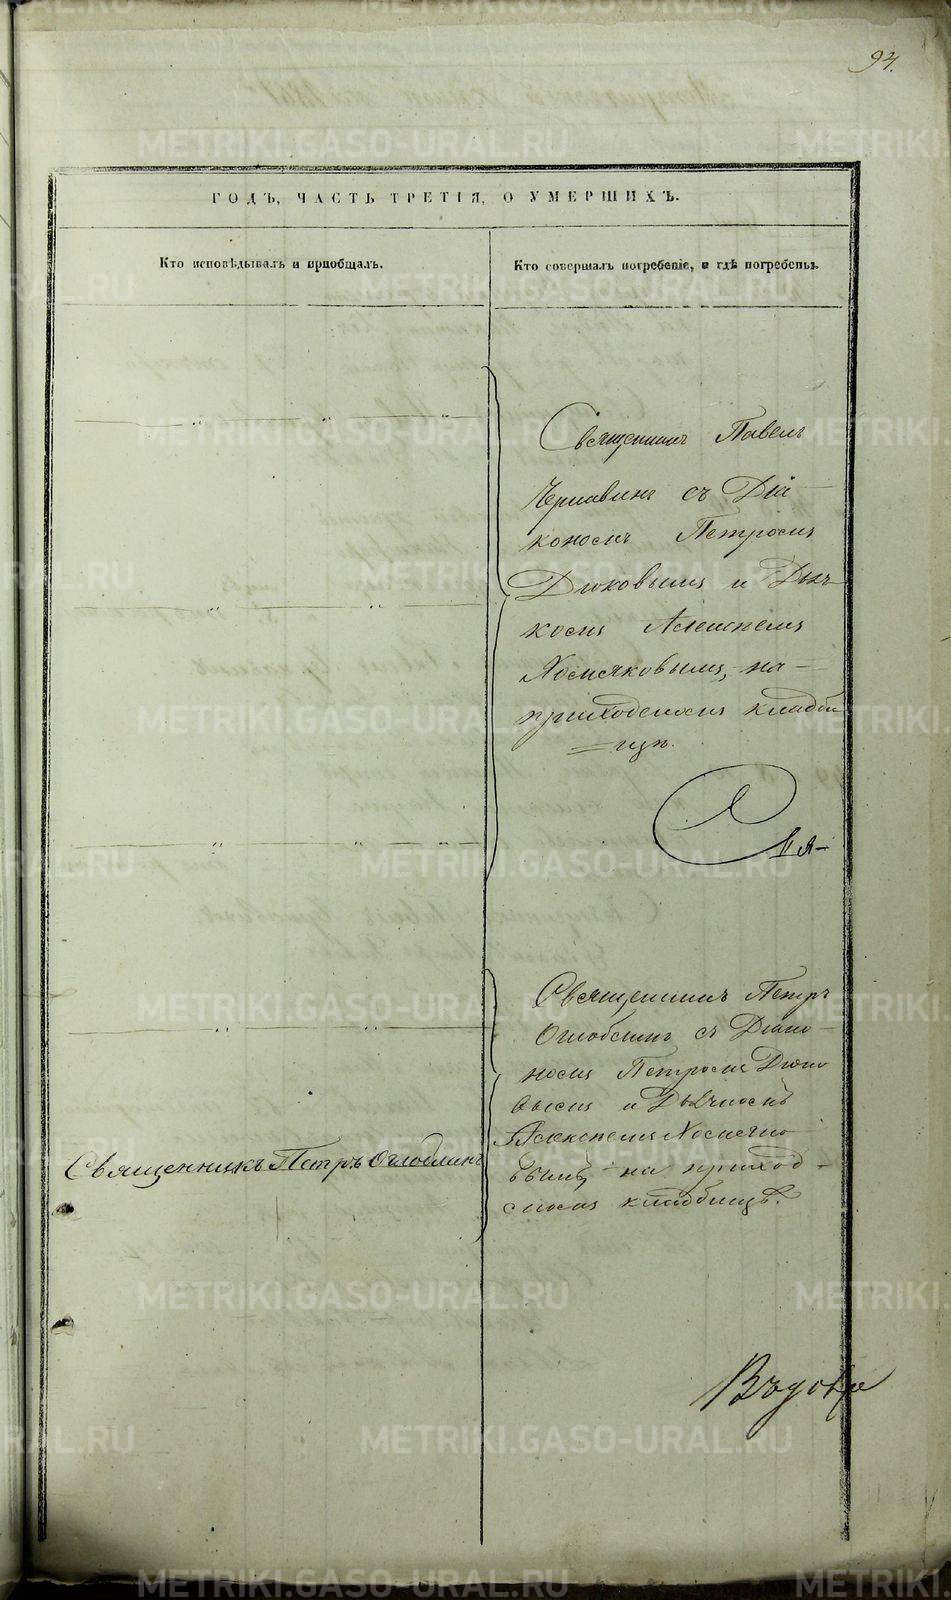 94.
ГОДЪ, ЧАСТЬ ТРЕТІЯ, О УМЕРШИХЪ.
Кто исповѣдывалъ и пріобщалъ.
Кто совершалъ погребеніе, и гдѣ погребены.
Священникъ Павелъ
Чернавинъ съ Діа-
кономъ Петромъ
Дюковымъ и Дьяч-
комъ Алексѣемъ
Хомяковымъ, на-
приходскомъ кладби-
щѣ.
Свя-
Священникъ Петръ
Оглоблинъ съ Діако-
номъ Петромъ Дюко
вымъ и Дьячкомъ
Алексѣемъ Хомяко-
вымъ, на приход-
скомъ кладбищѣ.
Священникъ Петръ Оглоблинъ
METRIKI.GASO-URAL.RU